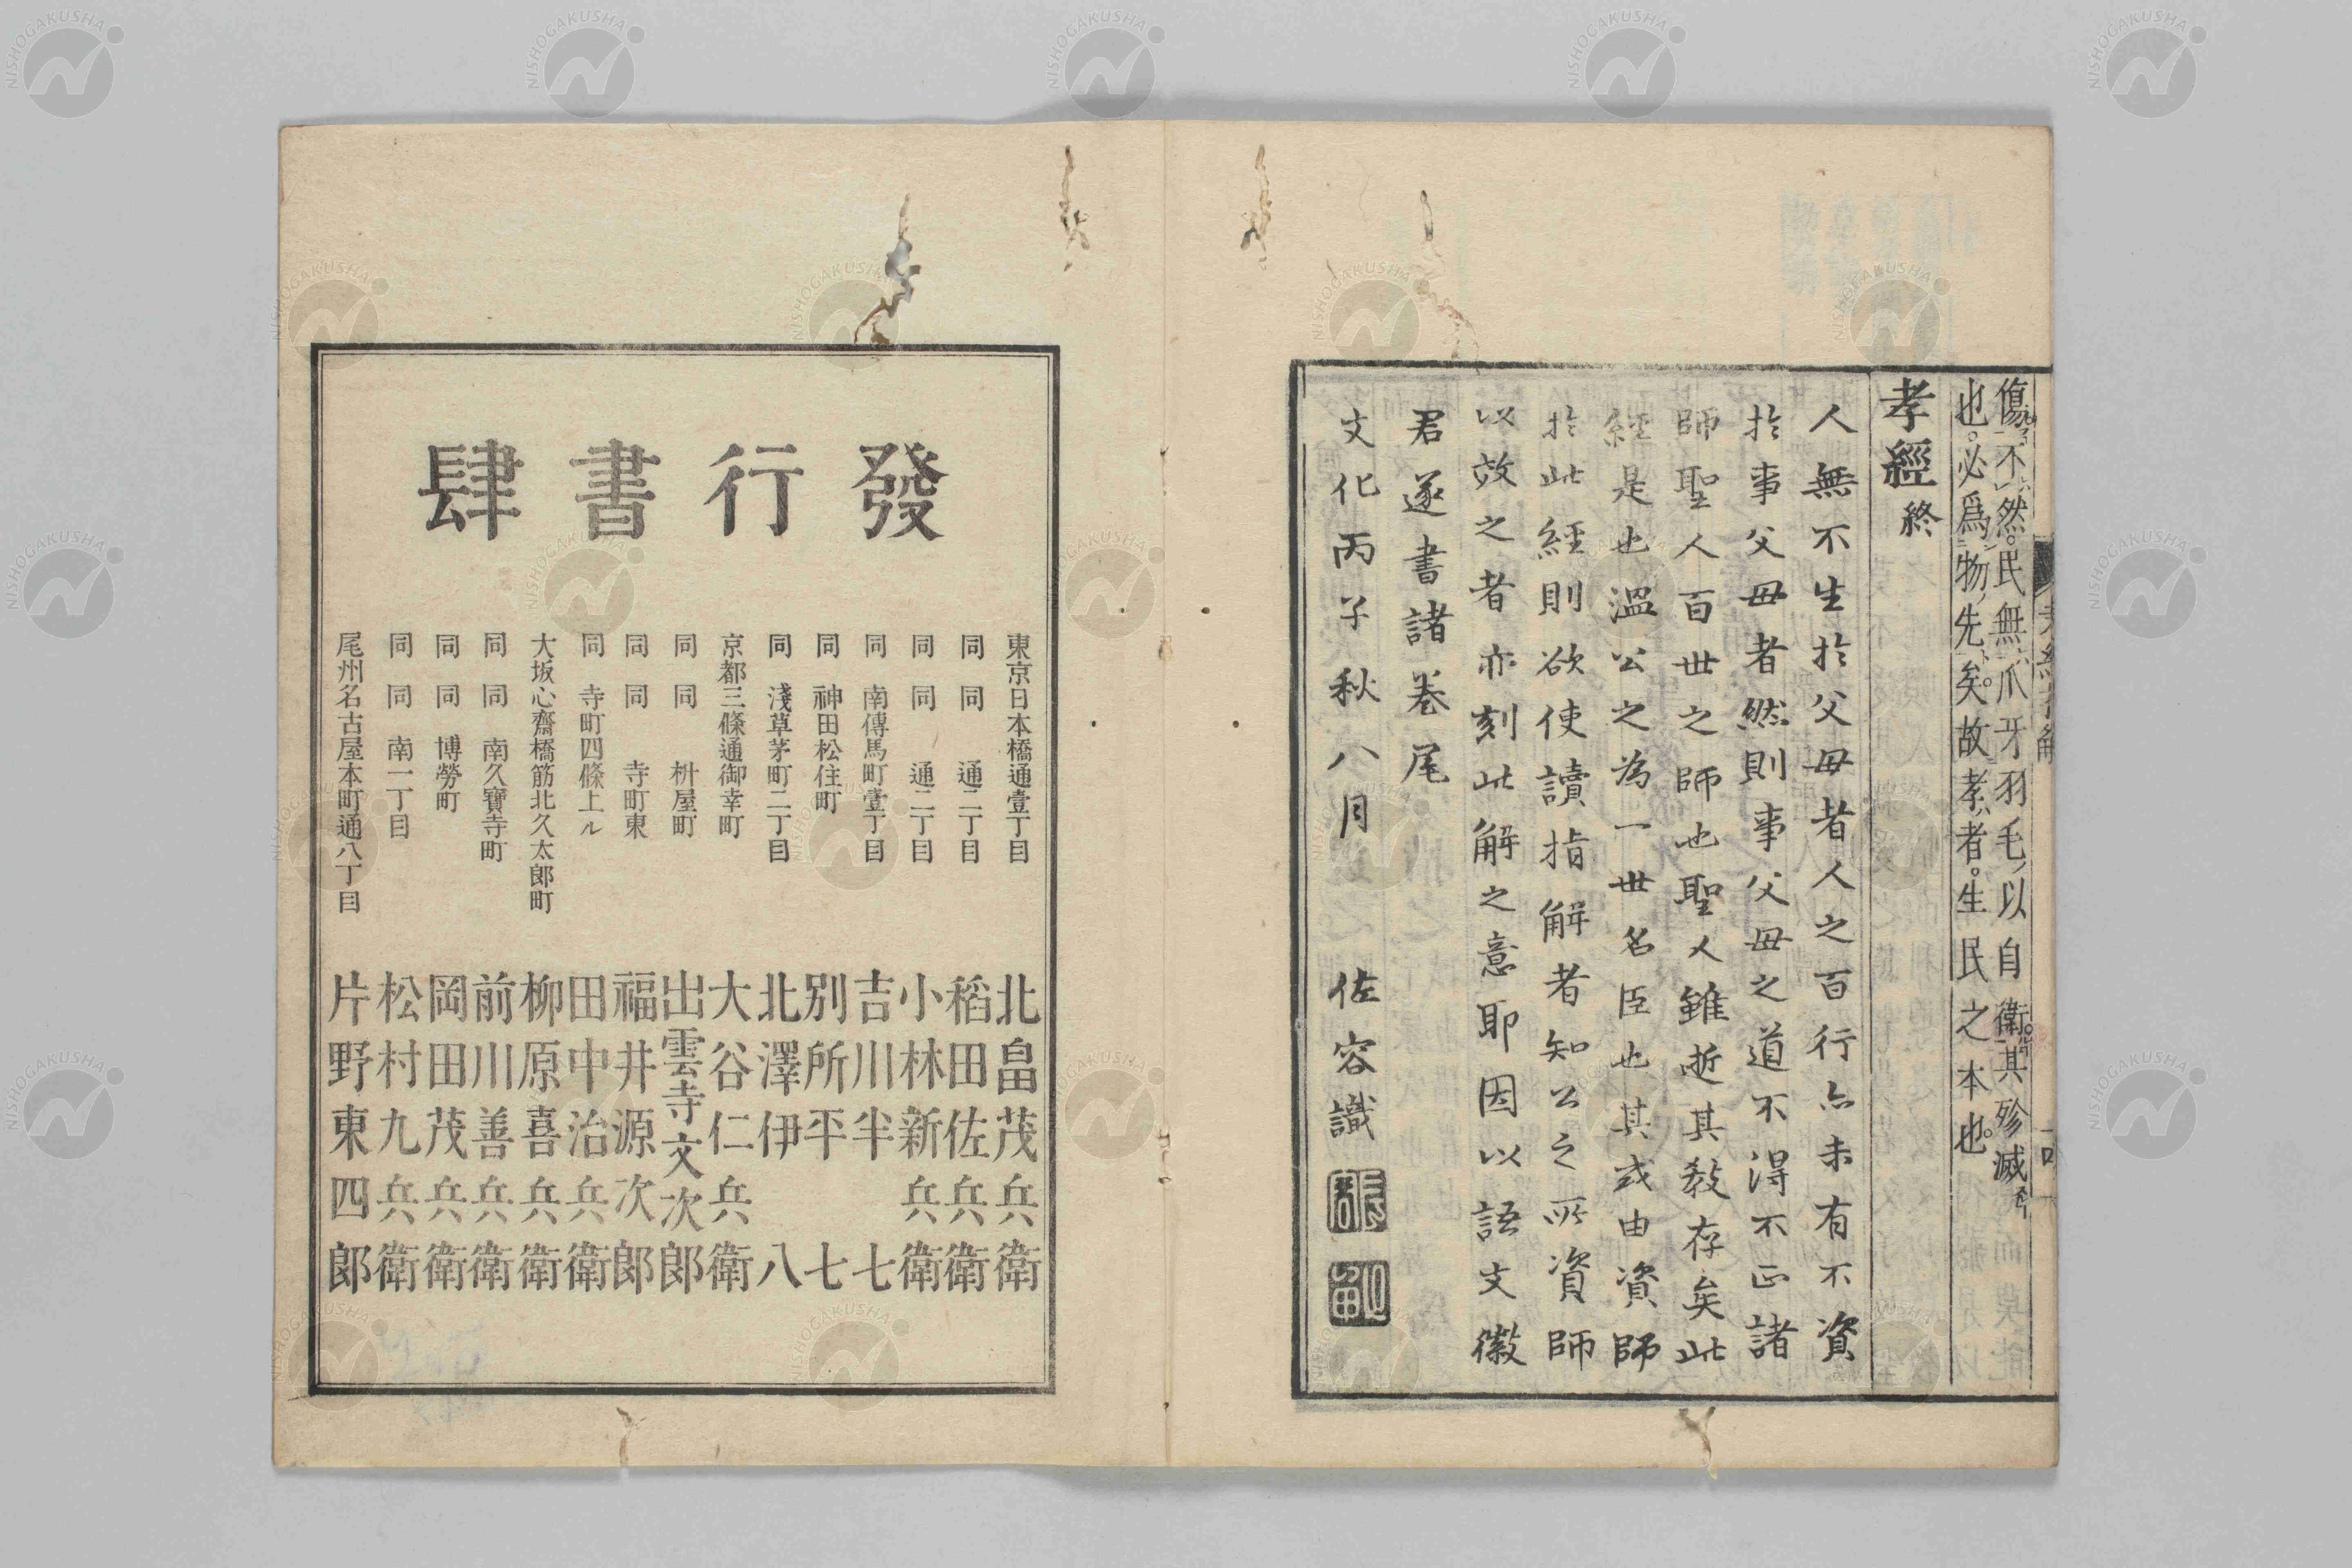 傷不然民無爪牙羽毛以自衛其殄滅
也必爲物先矣故孝者生民之本也
孝經終
人無不生於父母者人之百行亦未有不資
於事父母者然則事父母之道不得不正諸
師聖人百世之師也聖人雖逝其教存矣此
經是也溫公之為一世名臣也其或由資師
於此經則欲使讀指解者知公之所資師
以效之者亦刻此解之意耶因以語文徽
君遂書諸卷尾
文化丙子秋八月 佐容識
發行書肆
東京日本橋通壹丁目 北畠茂兵衛
同 同 通二丁目 稻田佐兵衛
同 同 通二丁目 小林新兵衛
同 南傳馬町壹丁目 吉川半七
同 神田松住町 別所平七
同 淺草茅町二丁目 北澤伊八
京都三條通御幸町 大谷仁兵衛
同 同 枡屋町 出雲寺文次郎
同 同 寺町東 福井源次郎
同 寺町四條上ル 田中治兵衛
大坂心齋橋筋北久太郎町 柳原喜兵衛
同 同 南久寶寺町 前川善兵衛
同 同 博勞町 岡田茂兵衛
同 同 南一丁目 松村九兵衛
尾州名古屋本町通八丁目 片野東四郎
NISHOGAKUSHA